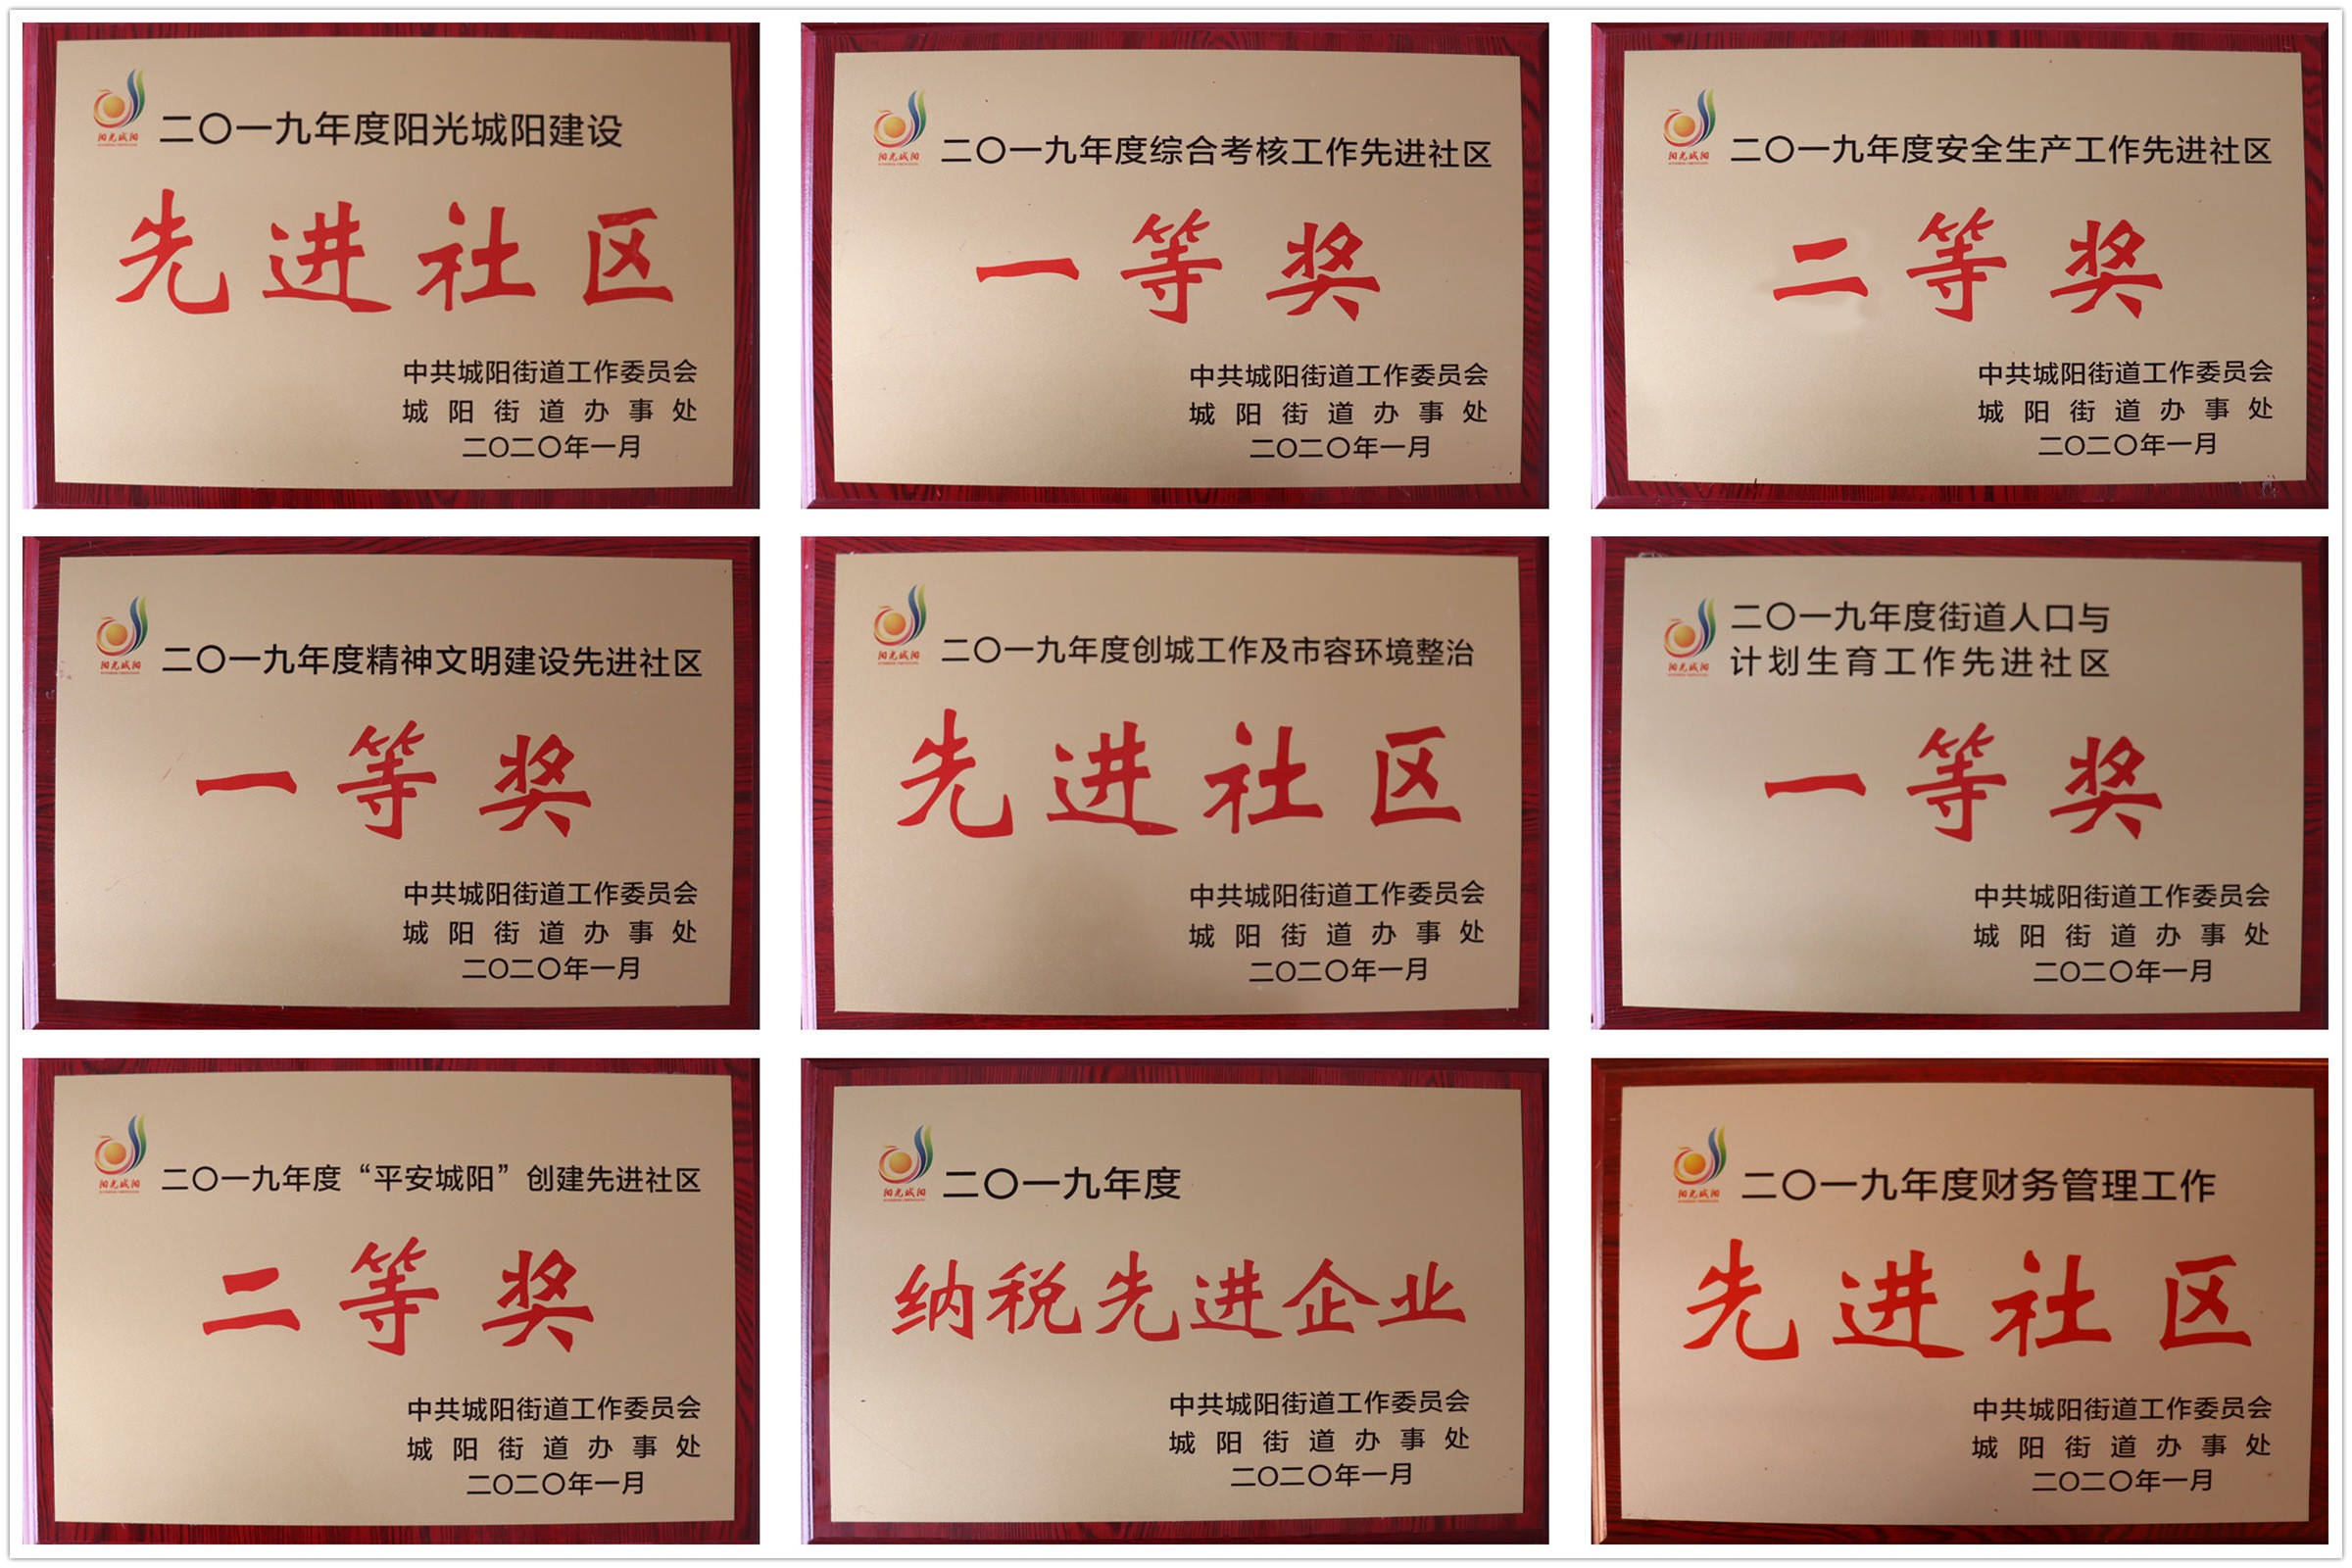 阳光城阳
二〇一九年度阳光城阳建设
先进社区
中共城阳街道工作委员会
城阳街道办事处
二〇二〇年一月
阳光城阳
二〇一九年度综合考核工作先进社区
一等奖
中共城阳街道工作委员会
城阳街道办事处
二〇二〇年一月
阳光城阳
二〇一九年度安全生产工作先进社区
二等奖
中共城阳街道工作委员会
城阳街道办事处
二〇二〇年一月
阳光城阳
二〇一九年度精神文明建设先进社区
一等奖
中共城阳街道工作委员会
城阳街道办事处
二〇二〇年一月
阳光城阳
二〇一九年度创城工作及市容环境整治
先进社区
中共城阳街道工作委员会
城阳街道办事处
二〇二〇年一月
阳光城阳
二〇一九年度街道人口与
计划生育工作先进社区
一等奖
中共城阳街道工作委员会
城阳街道办事处
二〇二〇年一月
阳光城阳
二〇一九年度“平安城阳”创建先进社区
二等奖
中共城阳街道工作委员会
城阳街道办事处
二〇二〇年一月
阳光城阳
二〇一九年度
纳税先进企业
中共城阳街道工作委员会
城阳街道办事处
二〇二〇年一月
阳光城阳
二〇一九年度财务管理工作
先进社区
中共城阳街道工作委员会
城阳街道办事处
二〇二〇年一月